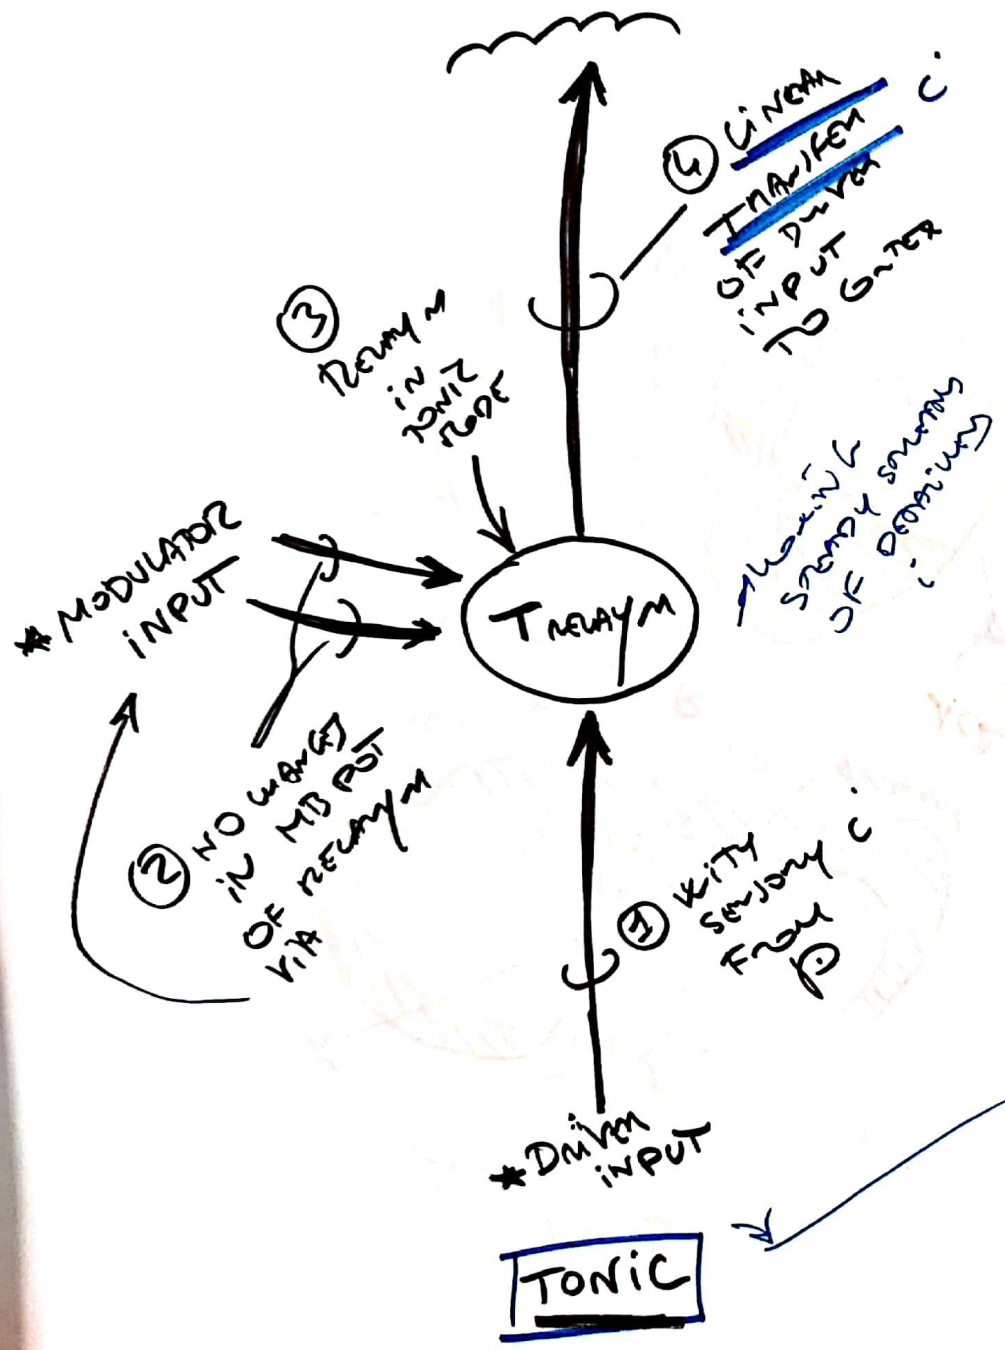 ④ LINEAR i
TRANSFER
OF DRIVER
INPUT
TO CORTEX
③
RELAY M
IN
TONIC
MODE
ALLOWING
STEADY
OF DETAILING
i
* MODULATOR
INPUT
T RELAY M
② NO CHANGES
IN MB POT
OF RELAY M
VIA
①
SENSORY i
FROM
P
* DRIVER
INPUT
TONIC